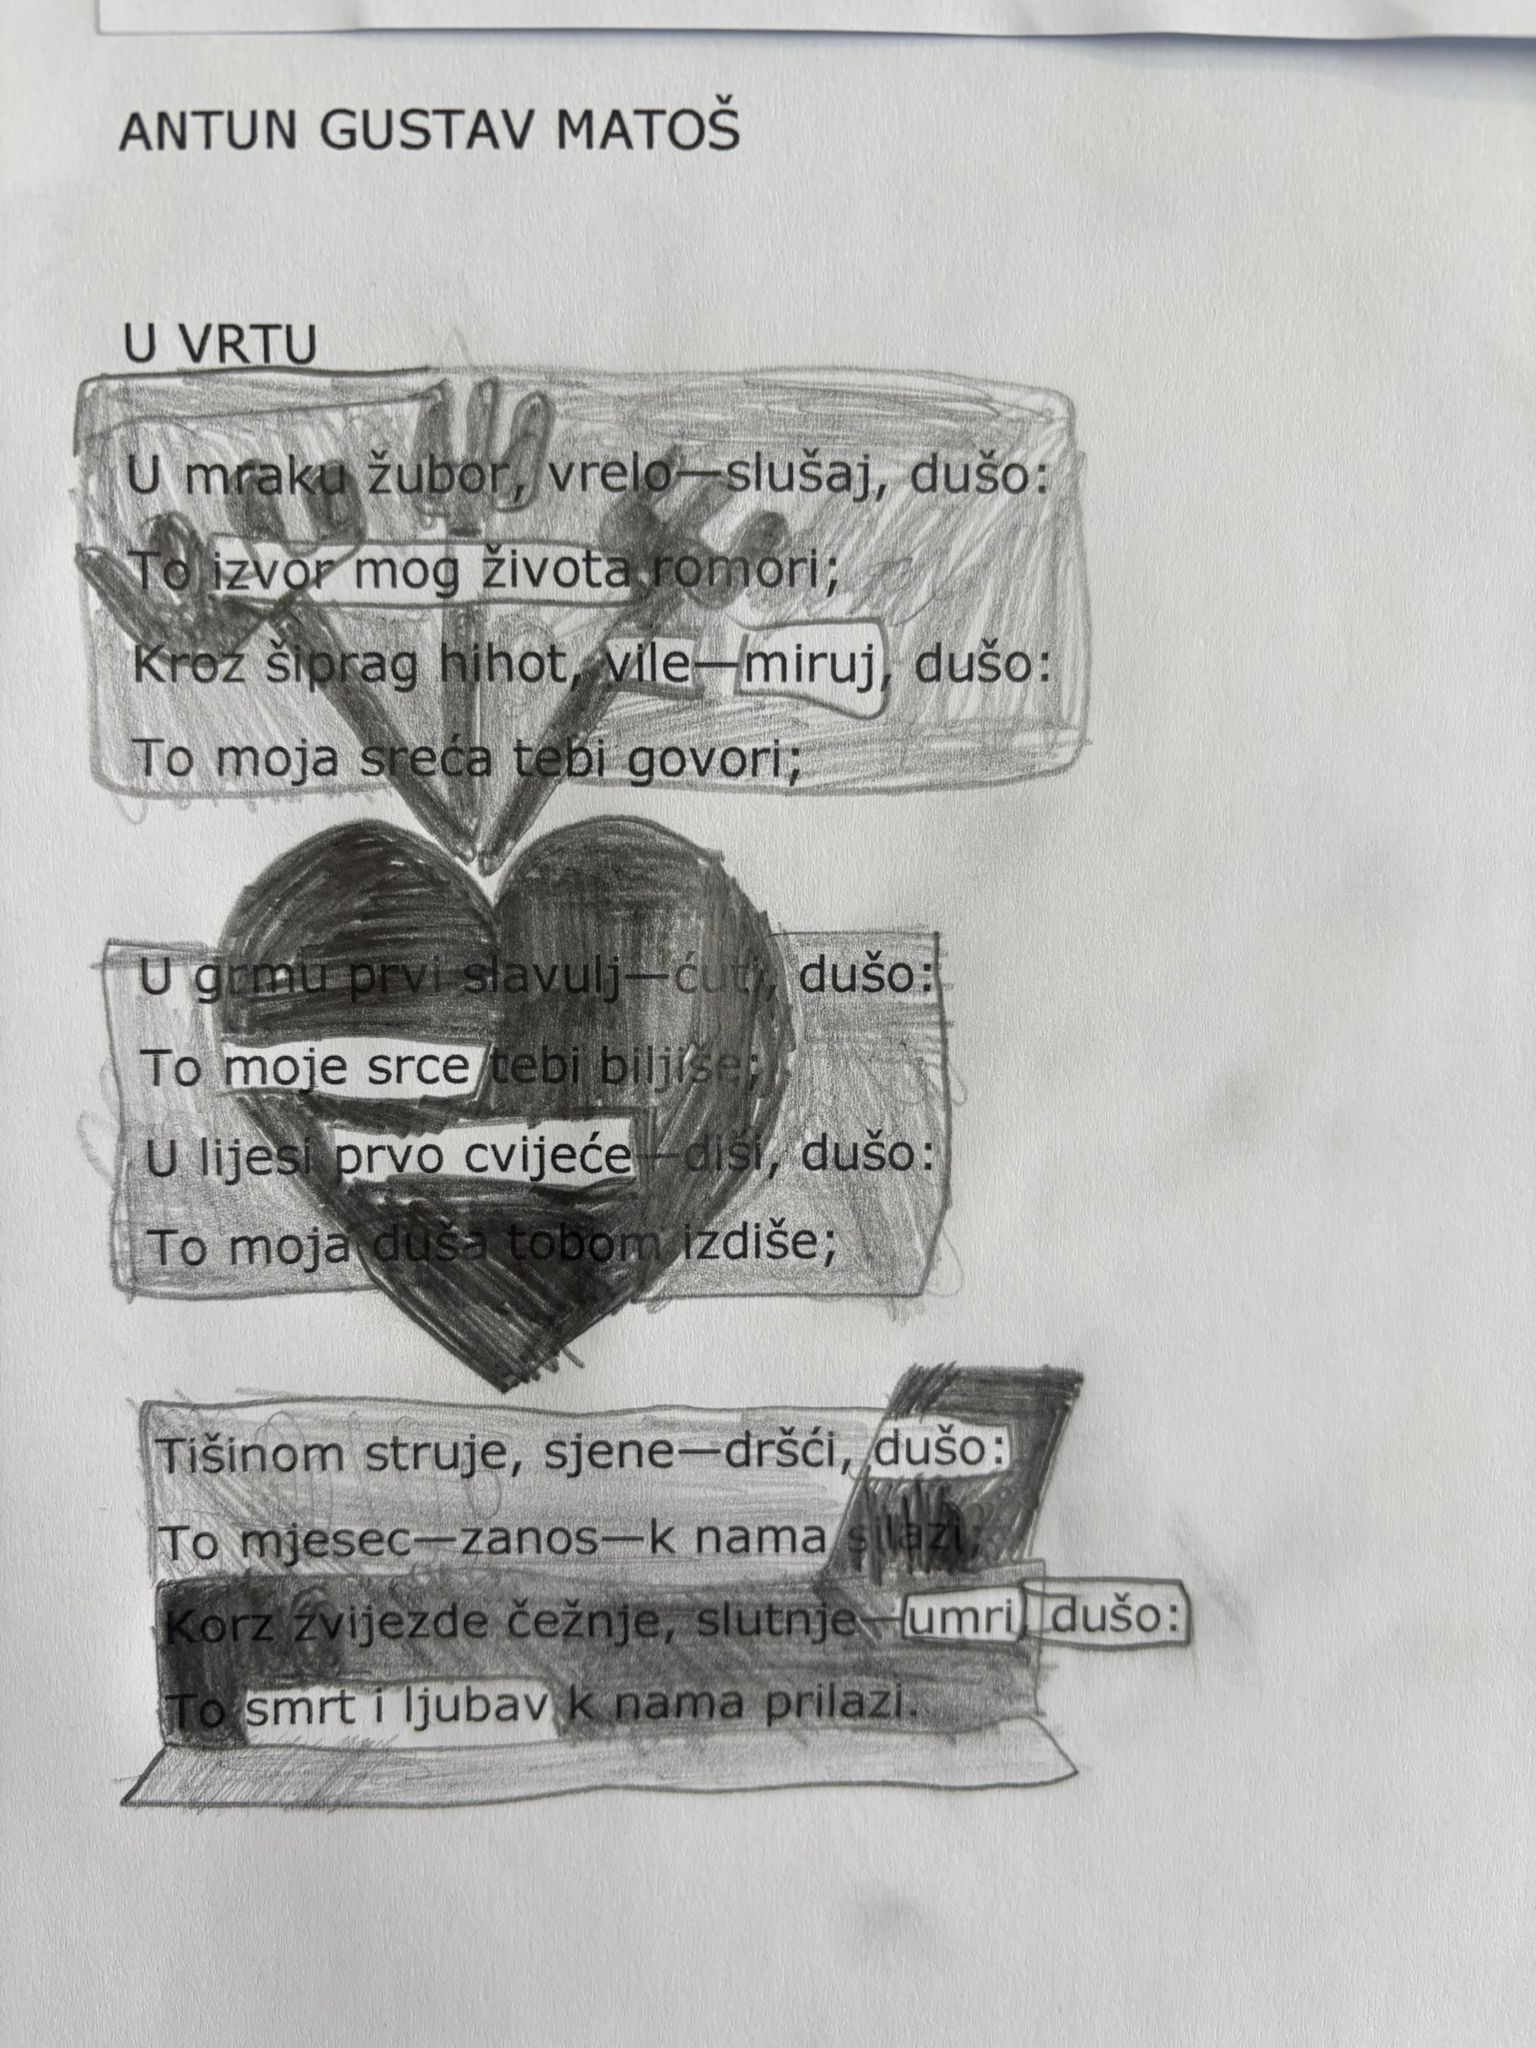 ANTUN GUSTAV MATOŠ
U VRTU
U mraku žubor, vrelo—slušaj, dušo:
To izvor mog života romori;
Kroz šiprag hihot, vile—miruj, dušo:
To moja sreća tebi govori;
U grmu prvi slavulj—ćuti, dušo:
To moje srce tebi biljiše;
U lijesi prvo cvijeće—diši, dušo:
To moja duša tobom izdiše;
Tišinom struje, sjene—dršći, dušo:
To mjesec—zanos—k nama silazi;
Korz zvijezde čežnje, slutnje—umri, dušo:
To smrt i ljubav k nama prilazi.